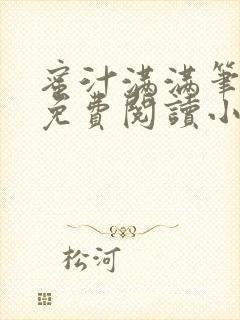 蜜汁满满筆
免費閱讀小
松河